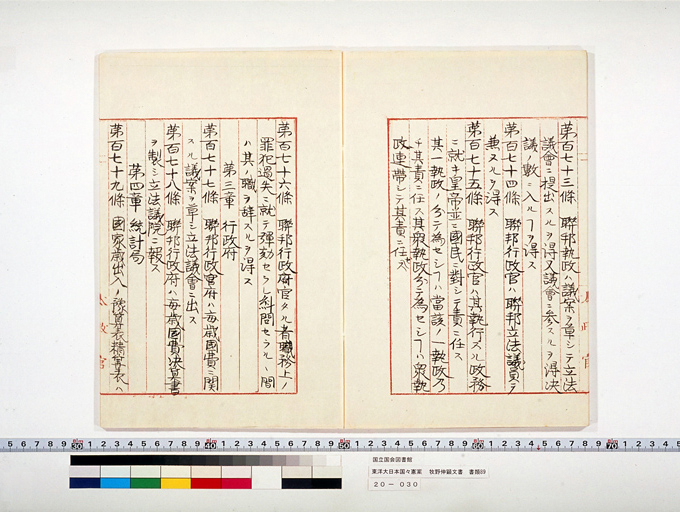 第百七十三條　聯邦執政ハ議案ヲ草シテ立法
議會ニ提出スルヲ得又議會ニ参スルヲ得決
議ノ數ニ入ルヿヲ得ス
第百七十四條　聯邦行政官ハ聯邦立法議員ヲ
兼ヌルヲ得ス
第百七十五條　聯邦行政官ハ其執行スル政務
ニ就キ皇帝並ニ國民ニ對シテ責ニ任ス
其一執政ノ分テ為セシヿハ當該ノ一執政乃
チ其責ニ任ス其衆執政分テ為セシヿハ衆執
政連帶シテ其責ニ任ス
太政官
第百七十六條　聯邦行政府官タル者職務上ノ
罪犯過失ニ就テ彈劾セラレ糾問セラルヽ間
ハ其ノ職ヲ辞スルヲ得ス
第三章　行政府
第百七十七條　聯邦行政官府ハ毎歳國費ニ関
スル議案ヲ草シ立法議會ニ出ス
第百七十八條　聯邦行政府ハ毎歳國費決算書
ヲ製シ立法議院ニ報ス
第四章　統計局
第百七十九條　國家歳出入ノ豫算表精算表ハ
太政官
国立国会図書館
東洋大日本国々憲案　牧野伸顕文書　書類89
20－030